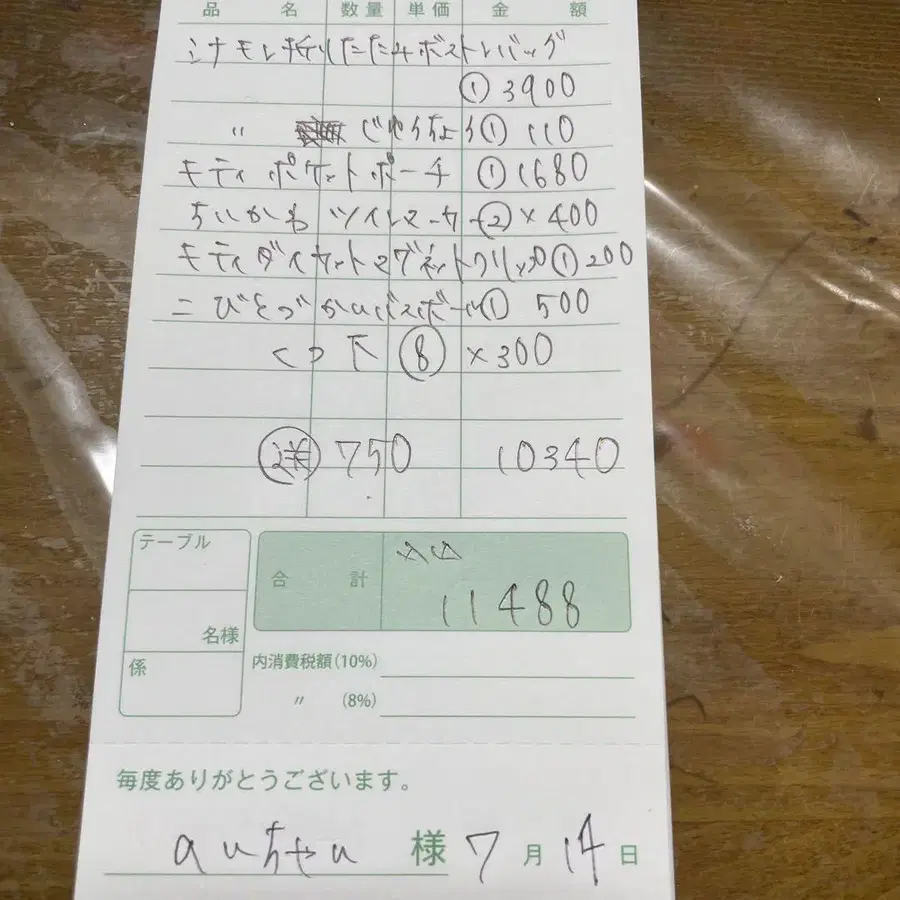 品名 数量 単価 金額
ミナモレ折りたたみボストンバッグ
① 3900
〃 じゆうちょう① 110
モティ ポケットポーチ ① 1680
ちいかわ ツイレマーカー② × 400
モティダイカットマグネットクリップ① 200
こびとづかんバスボール① 500
くつ下 ⑧ × 300
送 750 10340
テーブル
合計
11488
名様
係
内消費税額(10%)
〃 (8%)
毎度ありがとうございます。
auちゃん 様 7月14日